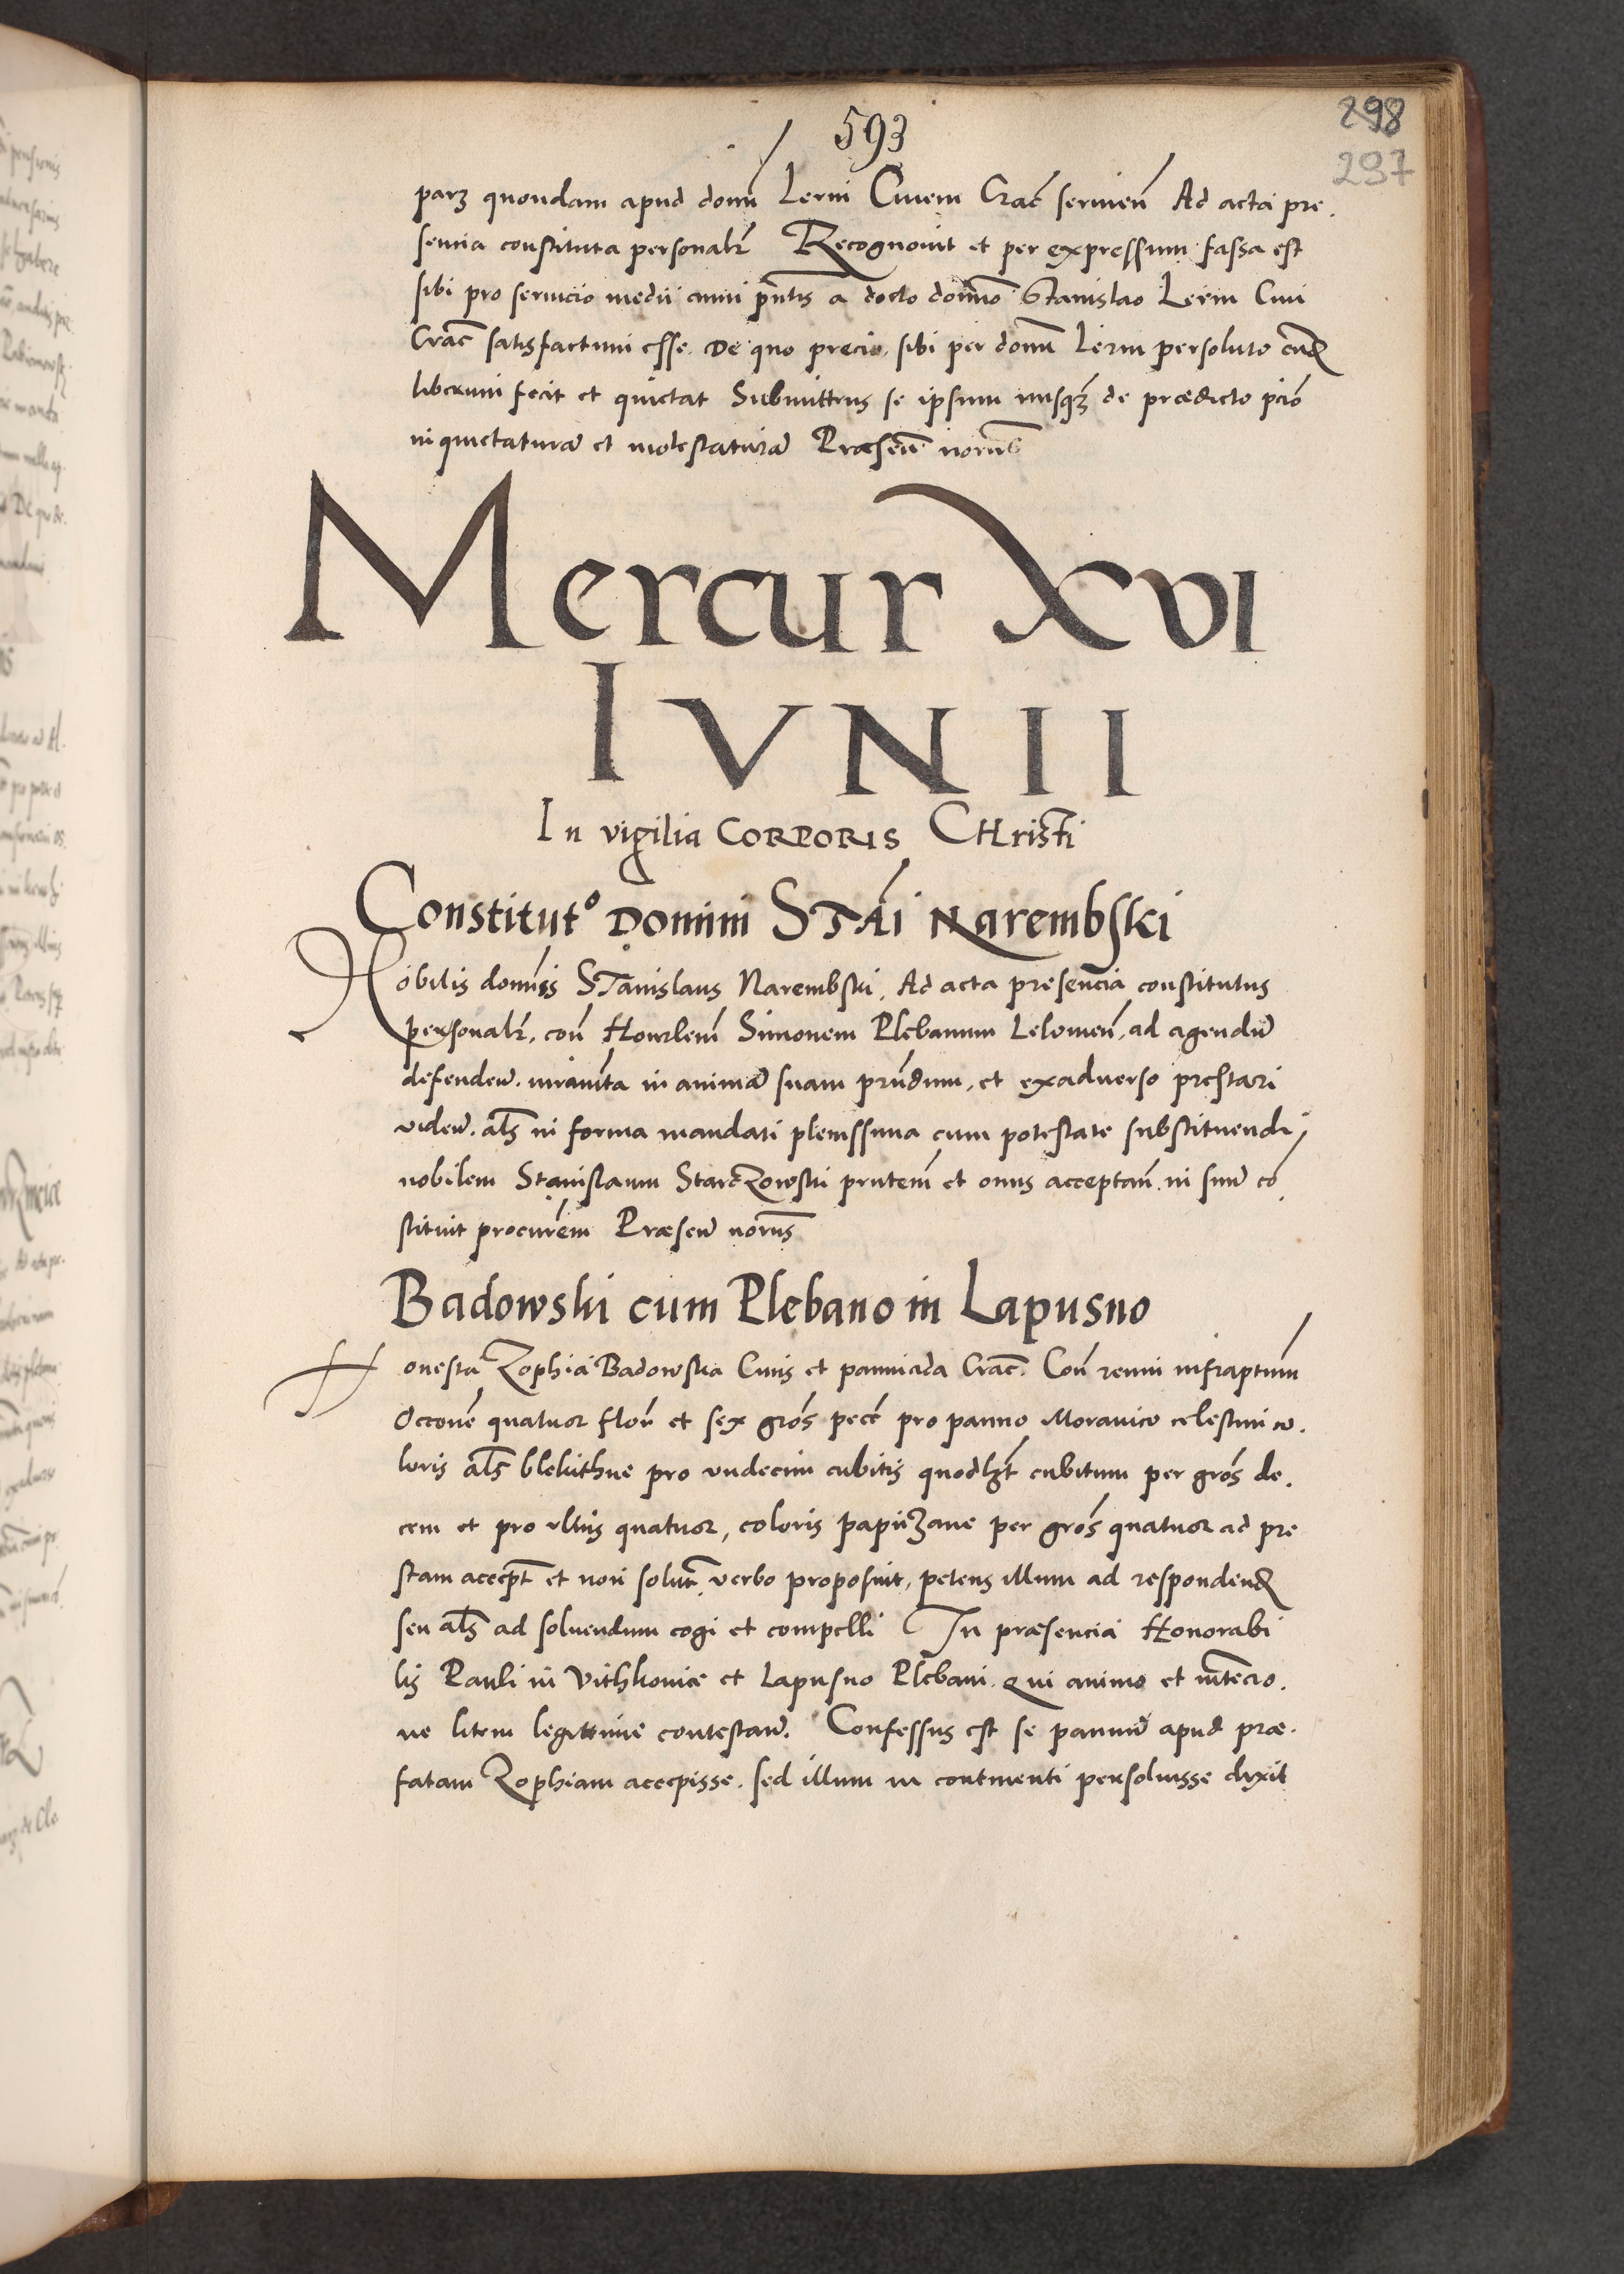 593
298
297
parꝫ quondam apud domῡ Lerm Ciuem Crac̄ seruien̄ Ad acta pre.
sencia constituta personalr̄ Recognouit et per expressum fassa est
sibi pro seruicio medii anni pn̄tis a docto domīo Stanislao Lerm Ciui
Crac̄ satisfactum esse. De quo precio. sibi per domῡ Lerm persoluto eund
liberum fecit et quietat Submittens se ipsum nusqꝫ de prædicto pcīo
inquietaturā et molestaturā Præsen̄
Mercur XVI
IVNII
In vigilia CORPORIS CHristi
Constitutº Domini STAi Narembski
Nobilis domīs STanislaus Narembski. Ad acta presencia constitutus
personalr̄. con̄ Honrlem̄ Simonem Plebanum Lelowien̄. ad agendū
defendeū. iuramta in animā suam prn̄dum. et exadverso prestari
videū. als̄ in forma mandati plenissima cum potestate substituendi
nobilem Stanislaum Starczowski pn̄tem̄ et onus acceptan̄. in suū cō
stituit procurēm Præsen̄
Badowski cum Plebano in Lapusno
Honesta Zophia Badowska Ciuis et pannicida Crac̄. Con̄ reum infraptum
Occōne quatuor flor̄ et sex gros̄ pecc̄ pro panno Morauico celestini co.
loris als̄ blekithne pro vndecim cubitis quodlꝫt cubitum per gros̄ de.
cem et pro vlnis quatuor, coloris papuzane per gros̄ quatuor ad pre
stam accept̄ et non solut̄. verbo proposuit, petens illum ad respondend
seu als̄ ad soluendum cogi et compelli In præsencia Honorabi
lis Pauli in Vithkonice et Lapusno Plebani. Qui animo et intēcio.
ne litem legittime contestan̄. Confessus est se pannū apud præ.
fatam Zophiam accepisse. sed illum in continenti persoluisse dixit